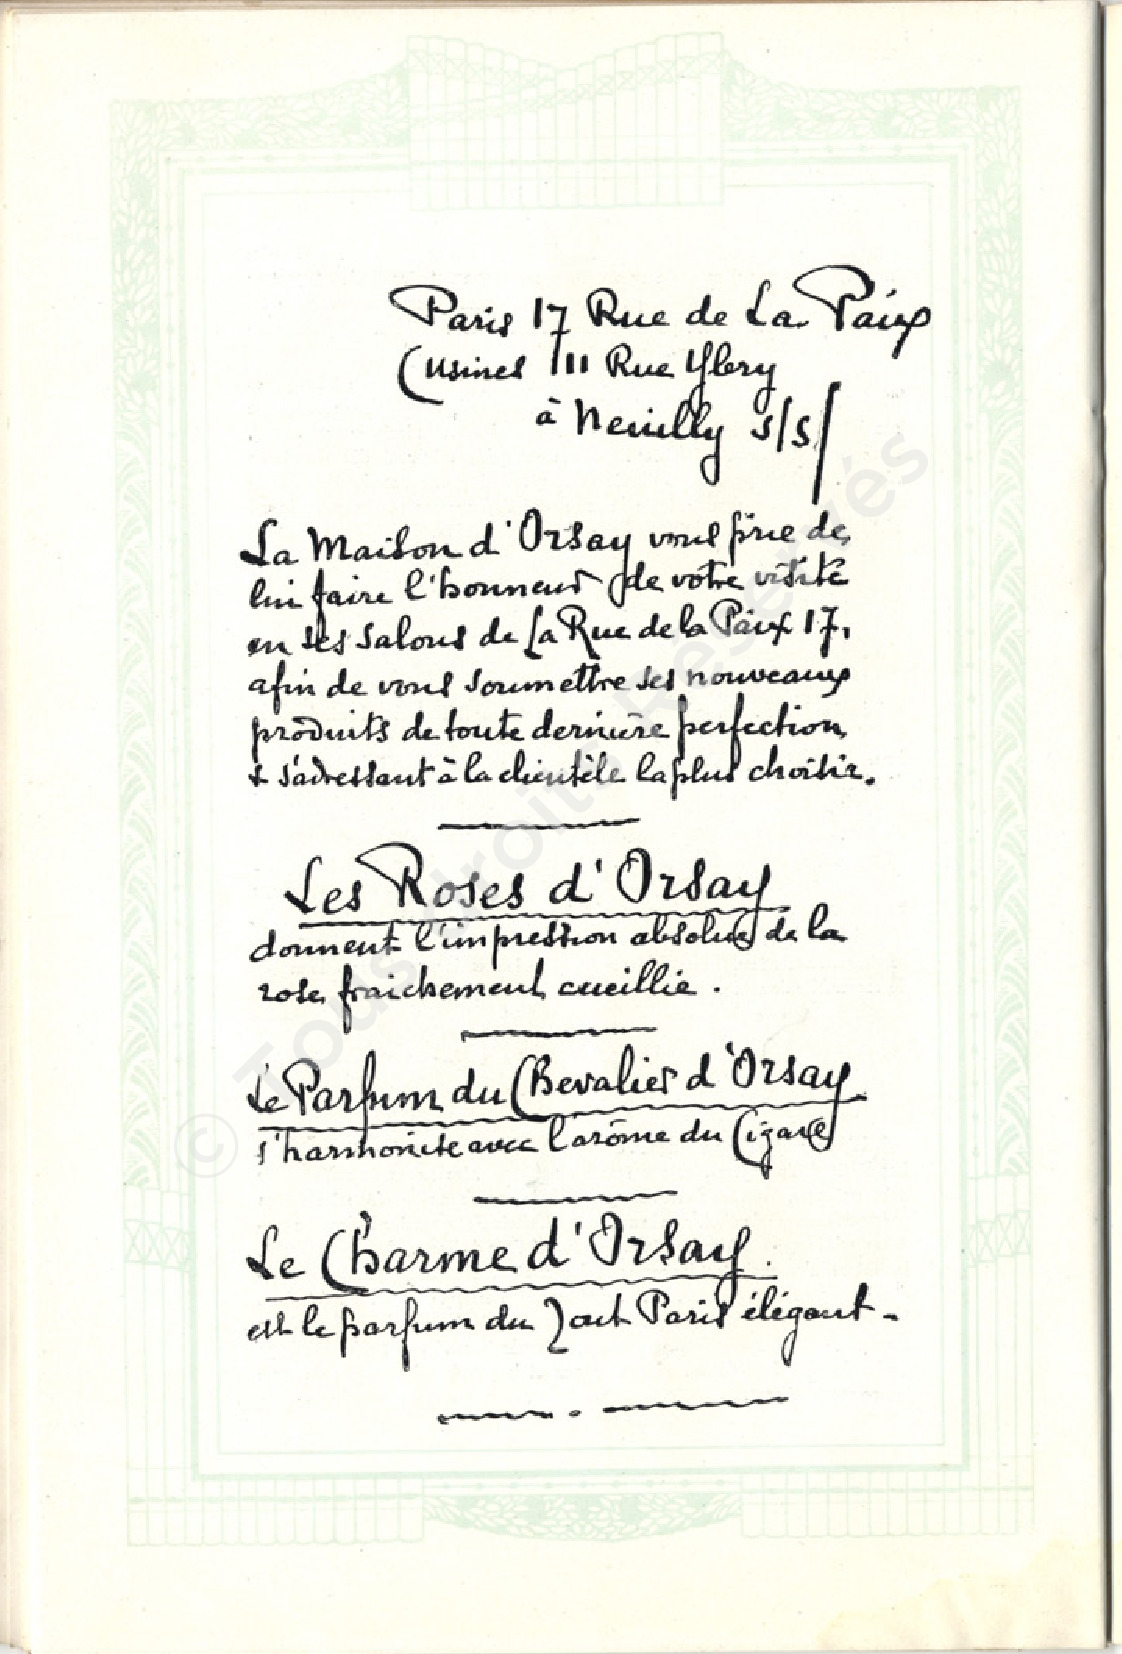 Paris 17 Rue de La Paix
(Usines 111 Rue Ybry
à Neuilly s/s/
La Maison d'Orsay vous prie de
lui faire l'honneur de votre visite
en ses salons de La Rue de la Paix 17,
afin de vous soumettre ses nouveaux
produits de toute dernière perfection
& s'adressant à la clientèle la plus choisie.
Les Roses d'Orsay
donnent l'impression absolue de la
rose fraichement cueillie.
Le Parfum du Chevalier d'Orsay
s'harmonise avec l'arôme du Cigare
Le Charme d'Orsay.
est le parfum du Tout Paris élégant-
© Tous droits Réservés